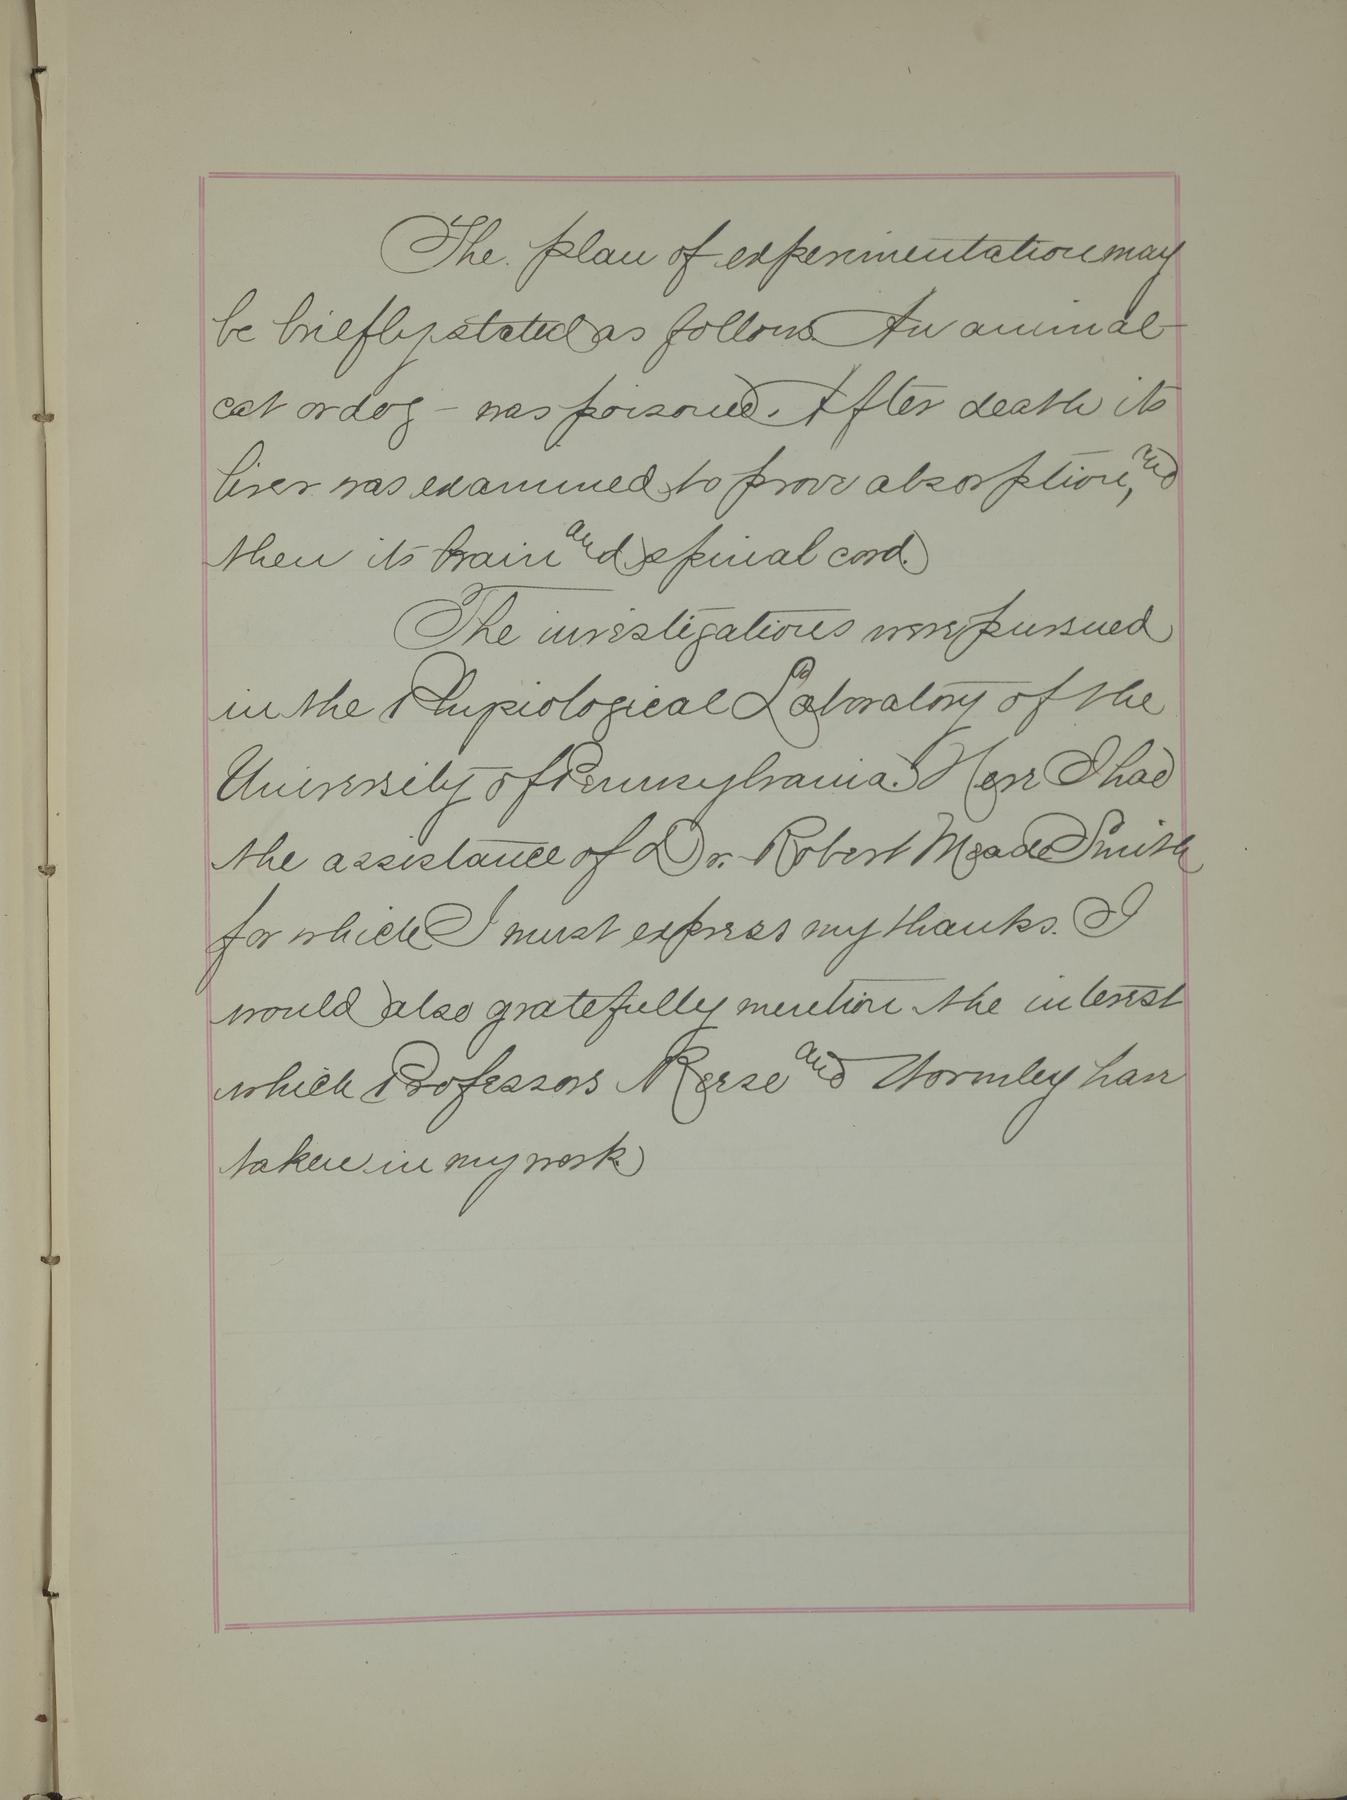 The plan of experimentation may
be briefly stated as follows. An animal -
cat or dog - was poisoned. After death its
liver was examined to prove absorption, and
then its brain and spinal cord.
The investigations were pursued
in the Physiological Laboratory of the
University of Pennsylvania. Here I had
the assistance of Dr. Robert Meade Smith
for which I must express my thanks. I
would also gratefully mention the interest
which Professors Reese and Wormley have
taken in my work